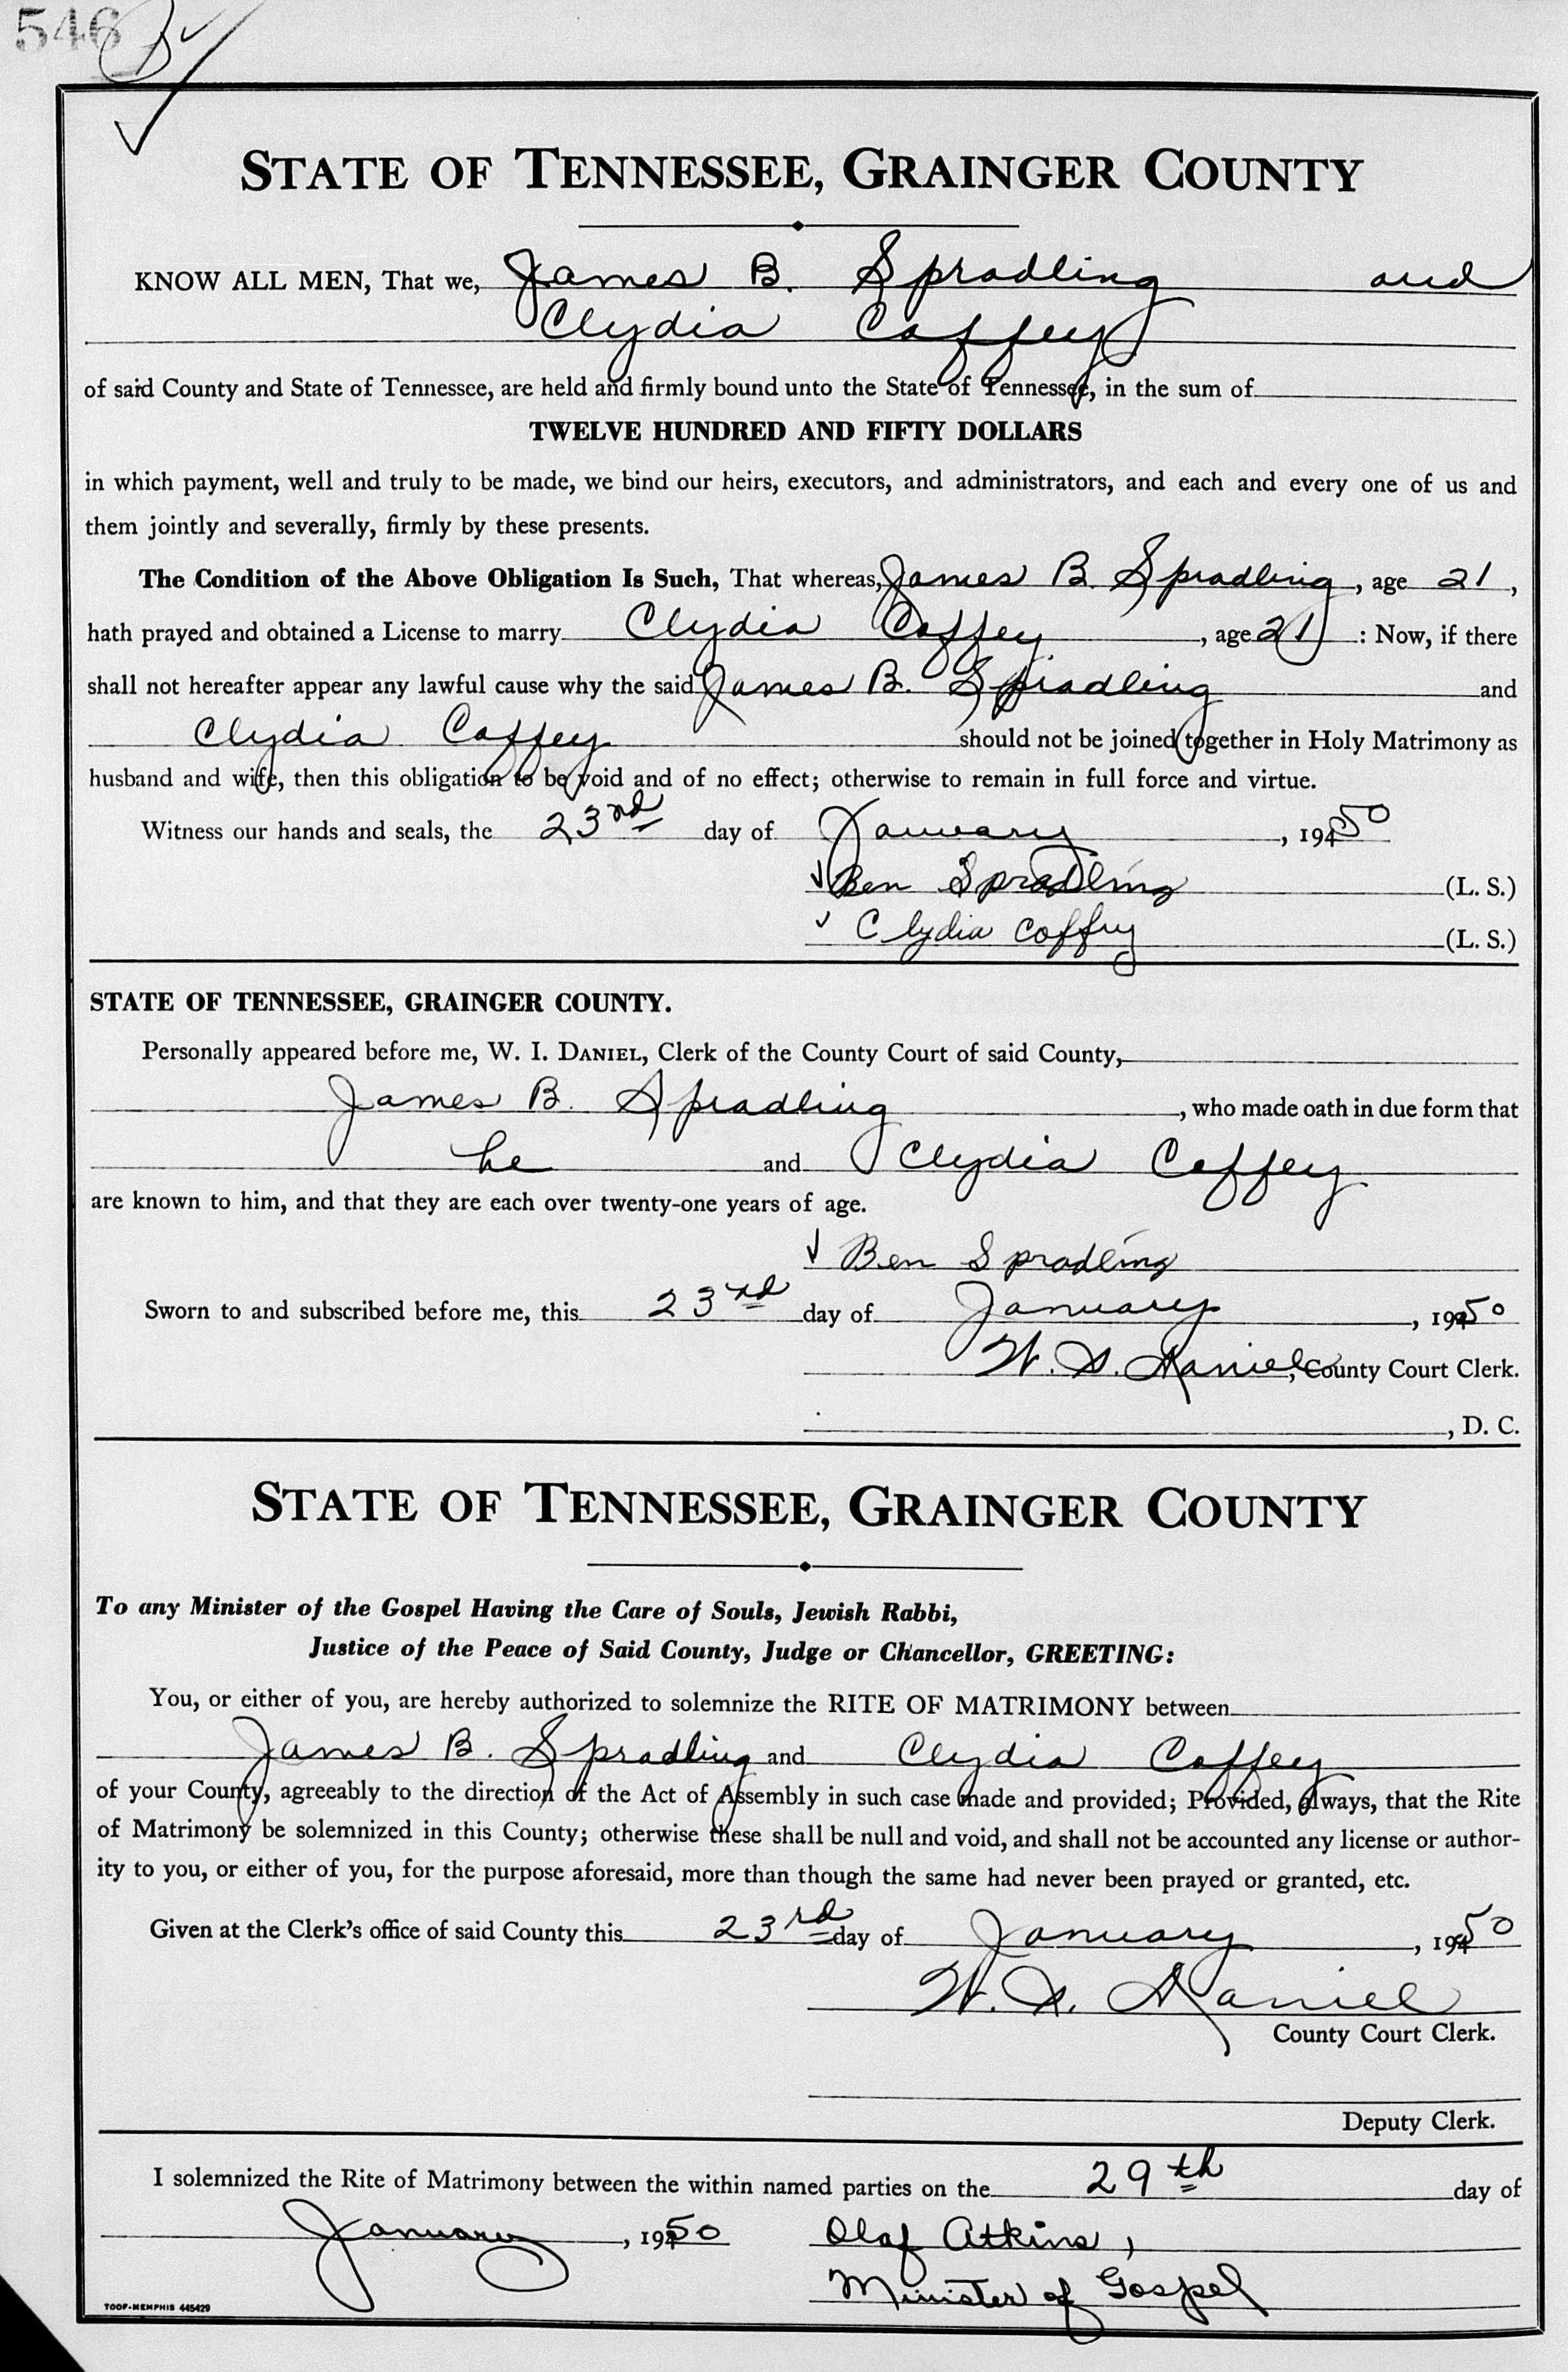 546
STATE OF TENNESSEE, GRAINGER COUNTY
KNOW ALL MEN, That we, James B. Spradling and
Clydia Coffey
of said County and State of Tennessee, are held and firmly bound unto the State of Tennessee, in the sum of
TWELVE HUNDRED AND FIFTY DOLLARS
in which payment, well and truly to be made, we bind our heirs, executors, and administrators, and each and every one of us and
them jointly and severally, firmly by these presents.
The Condition of the Above Obligation Is Such, That whereas, James B. Spradling, age 21,
hath prayed and obtained a License to marry Clydia Coffey, age 21 : Now, if there
shall not hereafter appear any lawful cause why the said James B. Spradling and
Clydia Coffey should not be joined together in Holy Matrimony as
husband and wife, then this obligation to be void and of no effect; otherwise to remain in full force and virtue.
Witness our hands and seals, the 23rd day of January, 1950
Ben Spradling (L. S.)
Clydia Coffey (L. S.)
STATE OF TENNESSEE, GRAINGER COUNTY.
Personally appeared before me, W. I. DANIEL, Clerk of the County Court of said County,
James B. Spradling, who made oath in due form that
he and Clydia Coffey
are known to him, and that they are each over twenty-one years of age.
Ben Spradling
Sworn to and subscribed before me, this 23rd day of January, 1950
W. I. Daniel, County Court Clerk.
, D. C.
STATE OF TENNESSEE, GRAINGER COUNTY
To any Minister of the Gospel Having the Care of Souls, Jewish Rabbi,
Justice of the Peace of Said County, Judge or Chancellor, GREETING:
You, or either of you, are hereby authorized to solemnize the RITE OF MATRIMONY between
James B. Spradling and Clydia Coffey
of your County, agreeably to the direction of the Act of Assembly in such case made and provided; Provided, always, that the Rite
of Matrimony be solemnized in this County; otherwise these shall be null and void, and shall not be accounted any license or author-
ity to you, or either of you, for the purpose aforesaid, more than though the same had never been prayed or granted, etc.
Given at the Clerk's office of said County this 23rd day of January, 1950
W. I. Daniel
County Court Clerk.
Deputy Clerk.
I solemnized the Rite of Matrimony between the within named parties on the 29th day of
January, 1950 Olaf Atkins,
Minister of Gospel
TOOF-MEMPHIS 445429